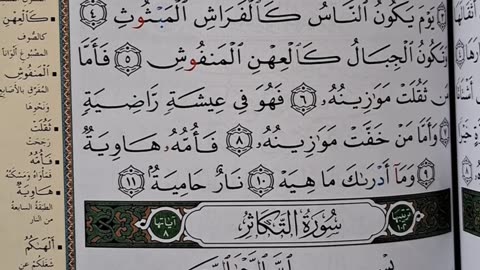 يَوْمَ يَكُونُ ٱلنَّاسُ كَٱلْفَرَاشِ ٱلْمَبْثُوثِ ٤
وَتَكُونُ ٱلْجِبَالُ كَٱلْعِهْنِ ٱلْمَنفُوشِ ٥ فَأَمَّا
مَن ثَقُلَتْ مَوَٰزِينُهُۥ ٦ فَهُوَ فِى عِيشَةٍ رَّاضِيَةٍ
٧ وَأَمَّا مَنْ خَفَّتْ مَوَٰزِينُهُۥ ٨ فَأُمُّهُۥ هَاوِيَةٌ
٩ وَمَآ أَدْرَىٰكَ مَا هِيَهْ ١٠ نَارٌ حَامِيَةٌۢ ١١
ترتيبها ١٠٢ سُورَةُ التَّكَاثُرِ آياتها ٨
كَٱلْعِهْنِ
كالصوف
المصبوغ ألوانا
ٱلْمَنفُوشِ
المفرّق بالأصابع
ونحوها
ثَقُلَتْ
رجحت
فَأُمُّهُۥ
فمأواه ومسكنه
هَاوِيَةٌ
الطبقة السابعة
من النار
أَلْهَىٰكُمُ
شغلكم عن